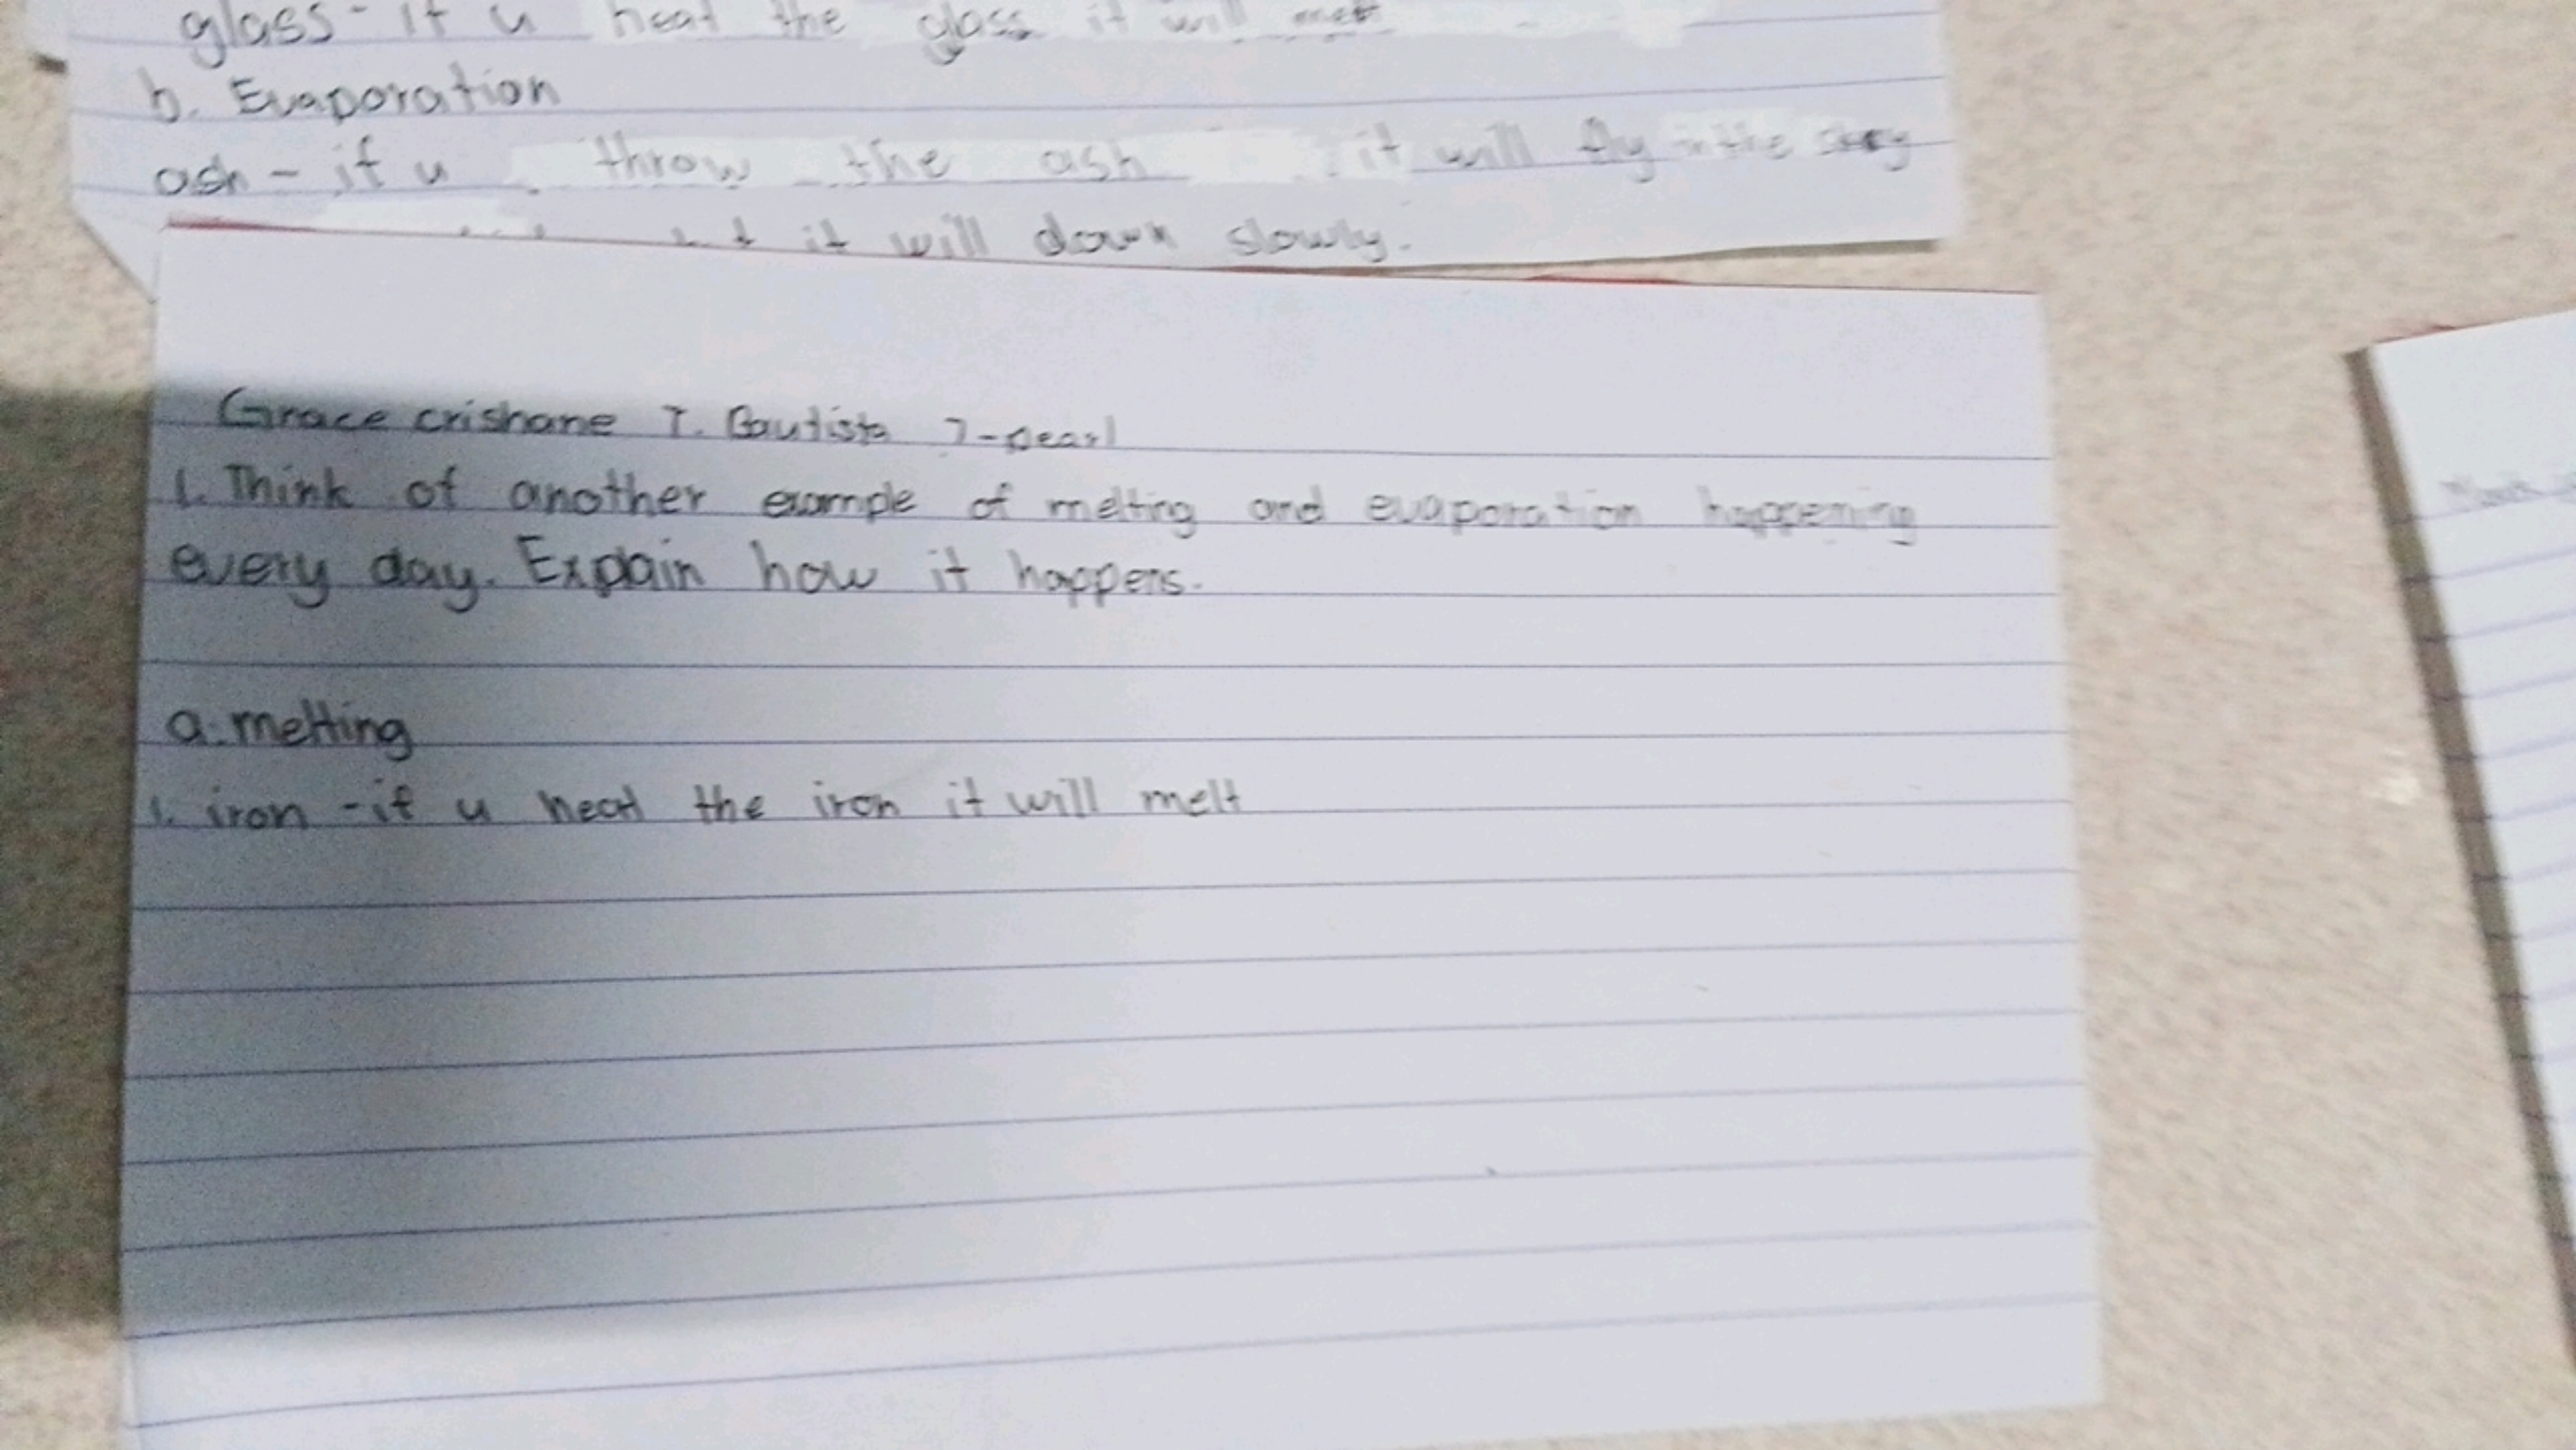 glass - if u heat the glass it will melt
b. Evaporation
ash - if u throw the ash it will fly in the
it will down slowly.
Grace crishane T. Bautista 7-pearl
1. Think of another example of melting and evaporation happening
every day. Explain how it happens.
a. melting
1. iron - if u heat the iron it will melt